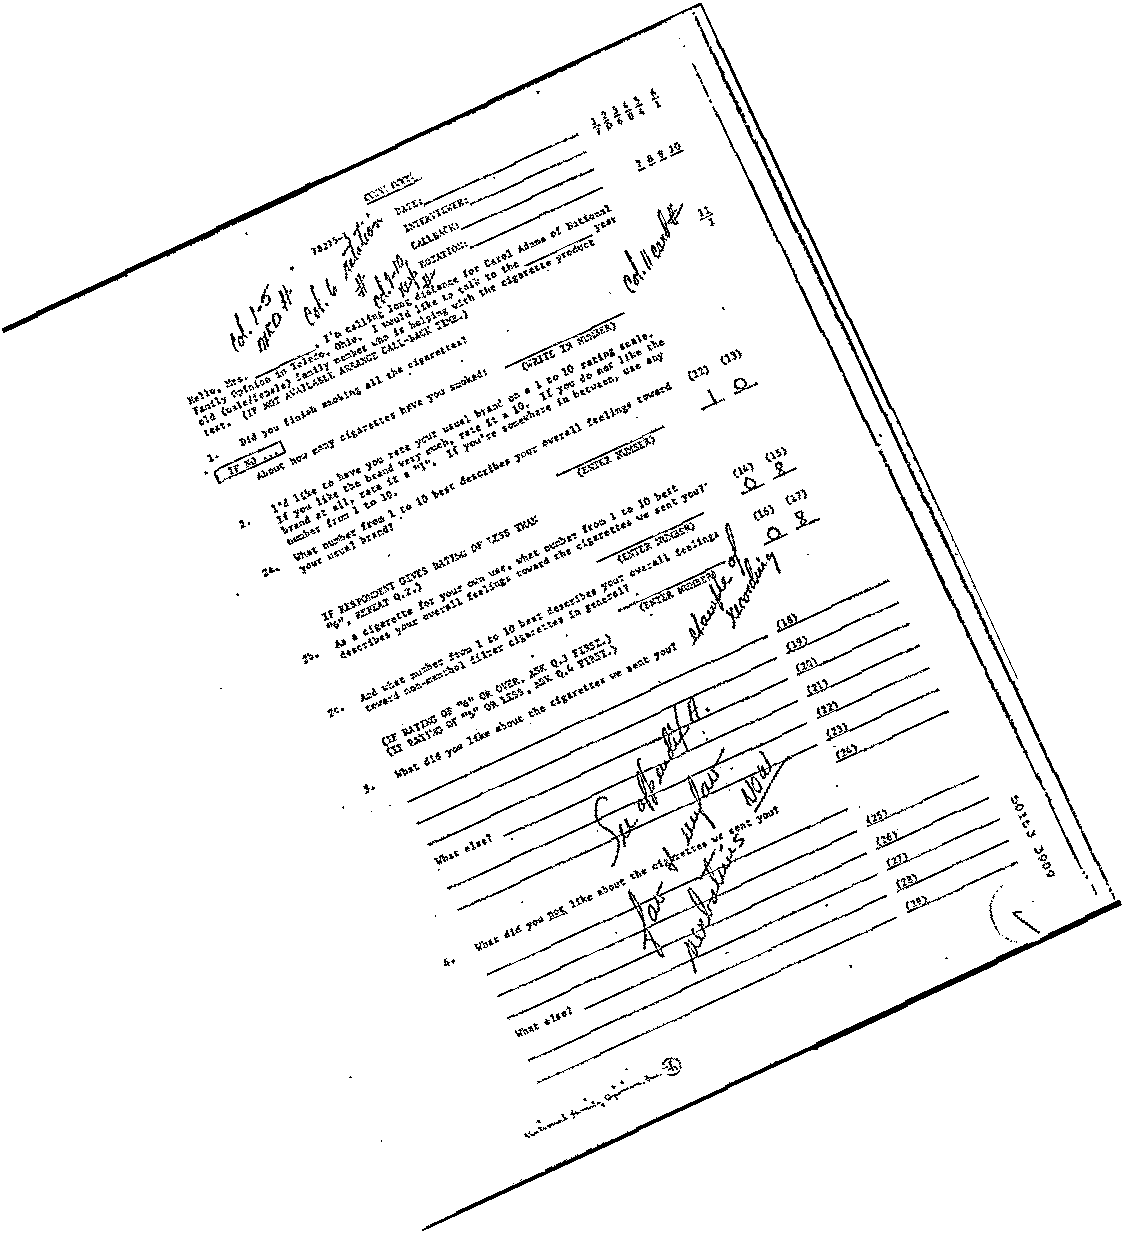 DATE:
INTERVIEWER:
CALLBACK:
ROTATION:
Col. 1-5
Col. 6 rotation
#
7 8 9 10
Col. 11 card #
11
1
Hello, Mrs. , I'm calling long distance for Carol Adams of National
Family Opinion in Toledo, Ohio. I would like to talk to the year
old (male/female) family member who is helping with the cigarette product
test. (IF NOT AVAILABLE ARRANGE CALL-BACK TIME.)
1. Did you finish smoking all the cigarettes?
IF NO ...
About how many cigarettes have you smoked:
(WRITE IN NUMBER)
2. I'd like to have you rate your usual brand on a 1 to 10 rating scale.
If you like the brand very much, rate it a 10. If you do not like the
brand at all, rate it a "1". If you're somewhere in between, use any
number from 1 to 10.
2a. What number from 1 to 10 best describes your overall feelings toward
your usual brand?
(ENTER NUMBER)
(12) (13)
1 0
IF RESPONDENT GIVES RATING OF LESS THAN
"6", REPEAT Q.2.)
2b. As a cigarette for your own use, what number from 1 to 10 best
describes your overall feelings toward the cigarettes we sent you?
(ENTER NUMBER)
(14) (15)
0 8
2c. And what number from 1 to 10 best describes your overall feelings
toward non-menthol filter cigarettes in general?
(ENTER NUMBER)
(16) (17)
0 8
(IF RATING OF "6" OR OVER, ASK Q.3 FIRST.)
(IF RATING OF "5" OR LESS, ASK Q.4 FIRST.)
example of
recording
3. What did you like about the cigarettes we sent you?
(18)
(19)
(20)
(21)
What else?
(22)
(23)
(24)
4. What did you not like about the cigarettes we sent you?
(25)
(26)
(27)
(28)
(29)
What else?
50113 3909